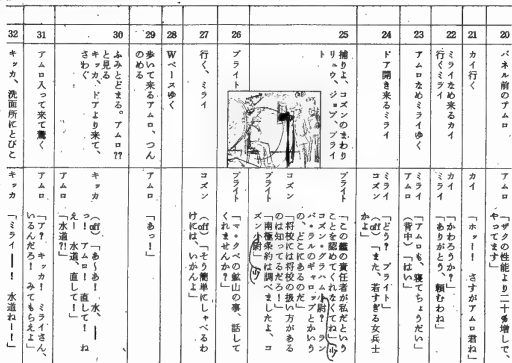 20
パネル前のアムロ
アムロ
「ザクの性能より二十%増しで、
やってます」
21
カイ行く
カイ
「ホッー！ さすがアムロ君ね」
22
ミライなめ来るカイ
行くミライ
カイ
「かわろうか？」
ミライ
「ありがとう、頼むわね」
23
アムロなめミライゆく
ミライ
「アムロも、寝てちょうだい」
アムロ
(背中)「はい」
24
ドア開き来るミライ
ミライ
「どう？ ブライト」
コズン
(off)「また、若すぎる女兵士
かよ」
25
捕りよ、コズンのまわり
リュウ、ジョブ、ブライ
ト
ブライト
「この艦の責任者が私だという
ことを認めてくれなくてね」
「コズン・グラハム小尉？ ラン
バ・ラルのギャロップのとかいう
の、どこにあるのだ」
コズン
「将校には将校の扱い方がある
のは知ってるだろ！」
ブライト
「南極条約は調べましたよ、コ
ズン小尉」
26
ブライト
ブライト
「マ・クベの鉱山の事、話して
くれませんか？」
27
行く、ミライ
コズン
(off)「そう簡単にしゃべるわ
けには、いかんよ」
28
Wベースゆく
29
歩いて来るアムロ、つん
のめる
アムロ
「あっ！」
30
ふみとどまる。アムロ??
と見る
キッカ、ドアより来て、
さわぐ
キッカ
(off)「あ〜あ！ 水、――
っ！ アムロ！ 直して！ ね
え！ 水道、直して！」
アムロ
「水道?!」
31
アムロ入って来て驚く
アムロ
「ア？ キッカ、ミライさん、
いるんだろ！ みてもらえよ」
32
キッカ、洗面所にとびと
キッカ
「ミライ――！ 水道ねー！」